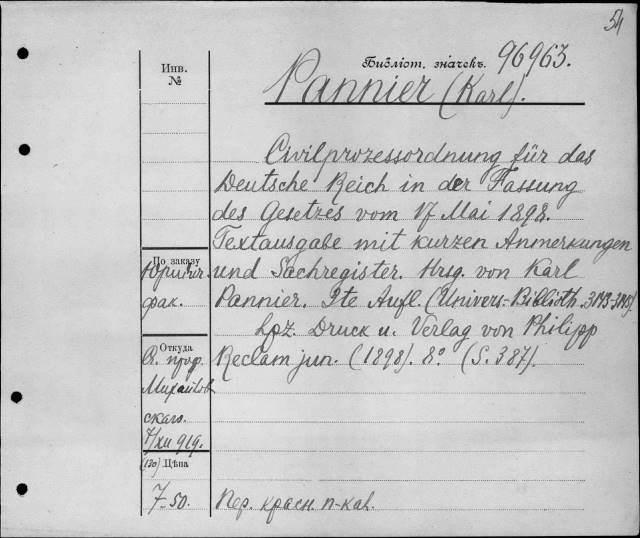 54
Библіот. значекъ. 96963.
Инв.
№
Pannier (Karl).
Civilprozessordnung für das
Deutsche Reich in der Fassung
des Gesetzes vom 17 Mai 1898.
Textausgabe mit kurzen Anmerkungen
По заказу
Юридич.
фак.
und Sachregister. Hrsg. von Karl
Pannier. 9te Aufl. (Univers.-Biblioth.
Lpz. Druck u. Verlag von Philipp
Откуда
От проф.
Михайлов
скаго.
7/XII 919.
Reclam jun. (1898). 8° (S. 387).
(130) Цѣна
7-50.
Пер. красн. п-кал.